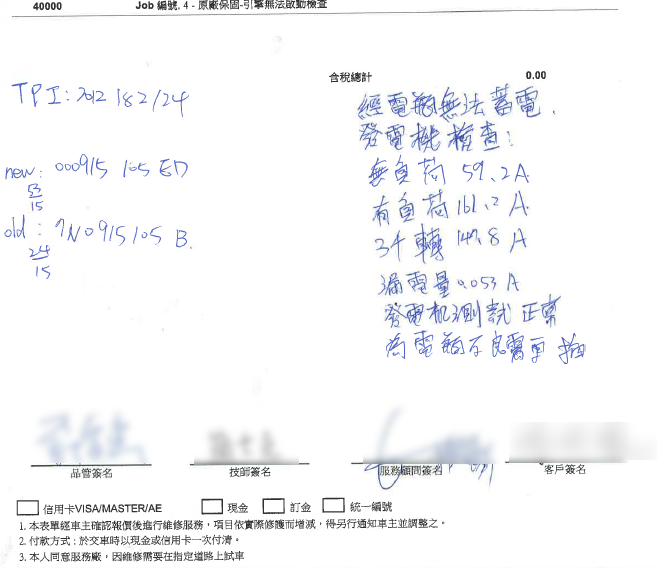 40000 Job 編號. 4 - 原廠保固-引擎無法啟動檢查
含稅總計 0.00
TPI: 2012 182/24
new: 000915 105 ED
53
15
old: 7N0915105 B.
24
15
經電瓶無法蓄電.
發電機檢查:
無負荷 59.2A
有負荷 161.2 A
3千轉 147.8 A
漏電量 0.053 A
發電机測試 正常
為電瓶不良需更換
品管簽名 技師簽名 服務顧問簽名 客戶簽名
信用卡VISA/MASTER/AE 現金 訂金 統一編號
1. 本表單經車主確認報價後進行維修服務，項目依實際修護而增減，得另行通知車主並調整之。
2. 付款方式：於交車時以現金或信用卡一次付清。
3. 本人同意服務廠，因維修需要在指定道路上試車